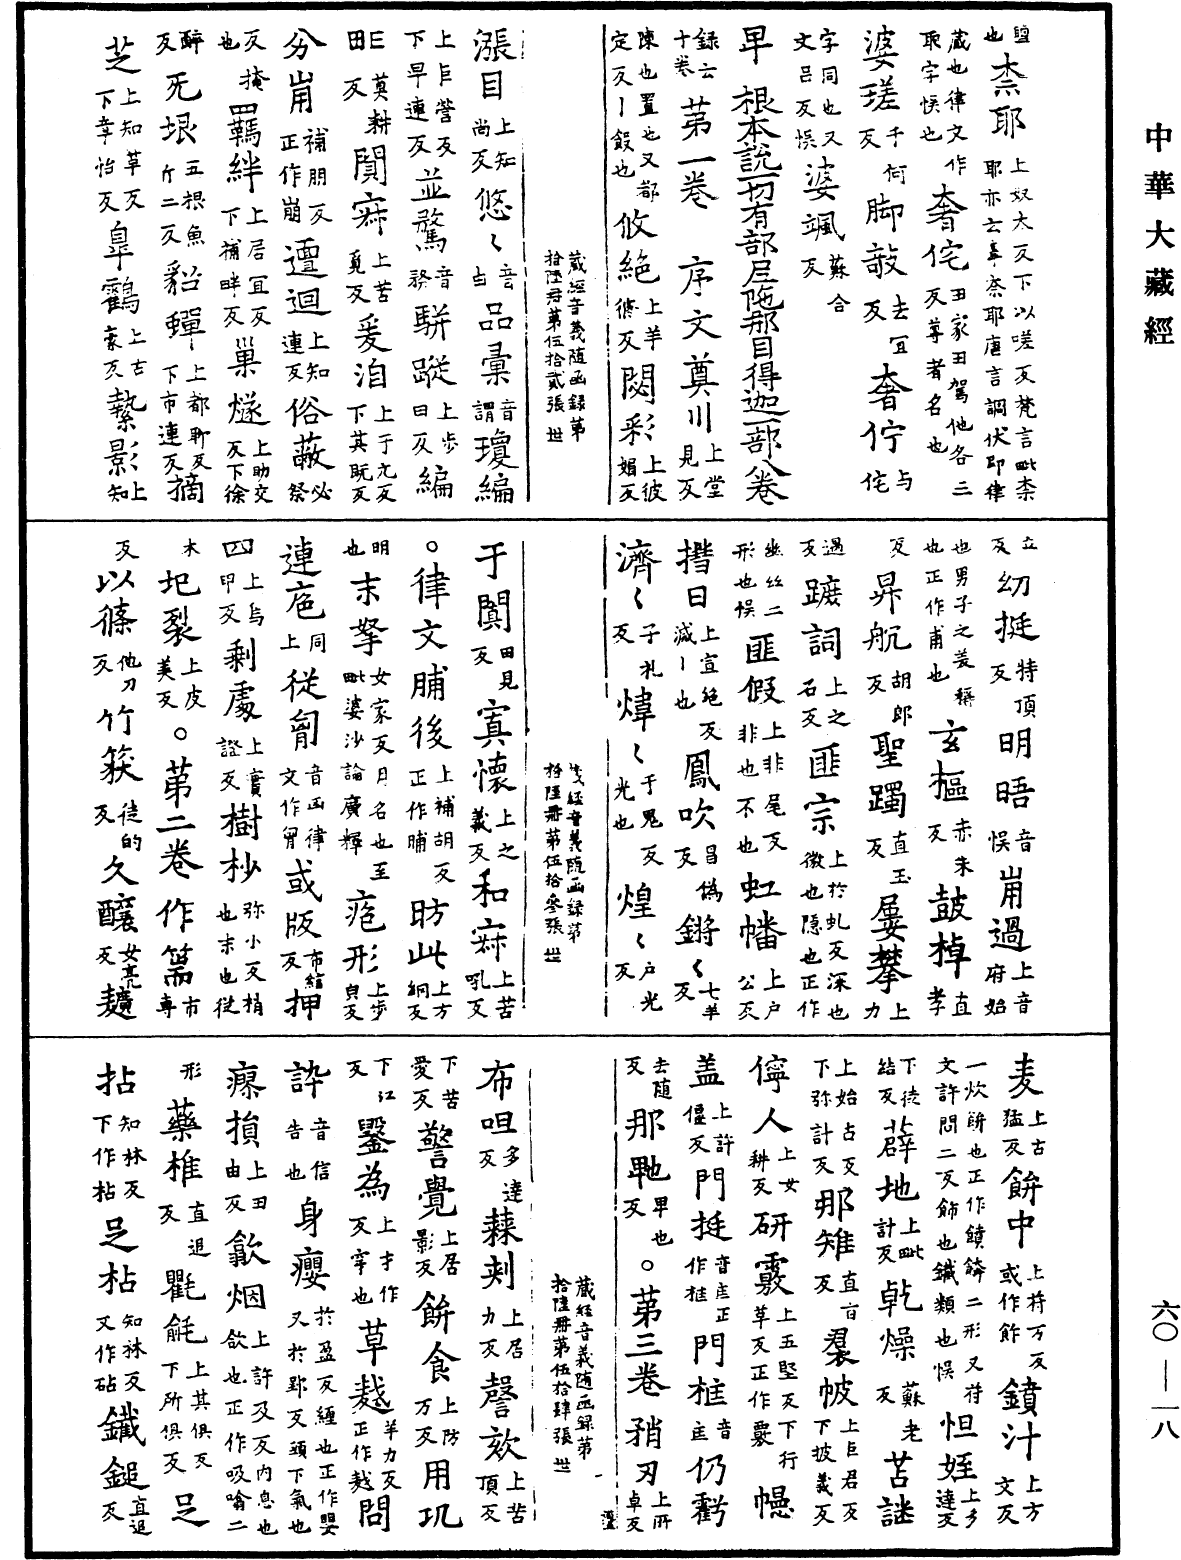 中華大藏經
也柰耶上奴太反下以嗟反梵言毗柰耶亦云毳柰耶唐言調伏即律
藏也律文作取字悮也奢侘田家田駕他各二反尊者名也
婆瑳千何反脚敧去宜反奢佇与侘
字同也又文吕反悮婆颯蘇合反
早根本説一切有部尼陁那目得迦一部八卷
録云十卷第一卷序文奠川上堂見反
陳也置也又都定反丨飣也攸絶上羊脩反閟彩上彼媚反
藏經音義随函録第拾陸册第伍拾貳張世
漲目上知尚反悠〻音由品彙音謂瓊編
上巨營反下早連反並騖音務駢蹤上步田反編
曰莫耕反閴寂上苦覓反爰洎上于元反下其旣反
分崩補朋反正作崩邅迴上知連反俗蔽必祭
反掩也羈絆上居宜反下補畔反巢燧上助交反下徐
醉反旡垠五根魚斤二反貂蟬上都聊反下市連反摘
芝上知革反下章怡反臯鶴上古家反縶影上知
立反幼挺特頂反明晤音悮崩過上音府始
也男子之美稱也正作甫也玄樞赤朱反鼓棹直孝
反昇航胡郎反聖躅直玉反屢攀上力
遇反蹠詞上之石反匪宗上於虬反深也微也隱也正作
幽丝二形也悮匪假上非尾反非也不也虹幡上户公反
揩日上宣絶反滅丨也鳳吹昌僞反鏘〻七羊反
濟〻子礼反煒〻于鬼反光也煌〻户光反
藏經音義随函録第拾陸册第伍拾叁張世
于闐田見反寘懷上之義反和寂上苦吼反
○律文脯後上補胡反正作晡昉此上方網反
明也末拏女家反日名也至毗婆沙論廣釋疱形上步皃反
連庖同上從匈音凶律文作胷或版布綰反押
四上烏甲反剩處上實證反樹杪弥小反梢也末也從
木圮裂上皮美反○第二卷作篅市專
反以篠他刀反竹䈥徒的反久釀女亮反麹
麦上古猛反餅中上符万反或作飰鐼汁上方文反
一炊餅也正作饙餴二形又符文許問二反飾也鐵類也悮怛姪上多達反
下徒結反薜地上毗計反乹燥蘇老反苫謎
上始占反下弥計反那雉直盲反羣帔上巨君反下披義反
儜人上女耕反研覈上五堅反下行革反正作覈幰
盖上許偃反門挺音㡷正作梃門框音匡仍虧
去随反那毑早也反○第三卷矟刃上所卓反
藏經音義随函録第拾陸册第伍拾肆張世
布呾多達反蕀刾上居力反謦欬上苦頂反
下苦愛反警覺上居影反餅食上防万反用玑
下江反鑿為上才作反穿也草趒羊力反正作趒問
誶音信告也身癭於盈反纏也正作嬰又於郢反頭下氣也
瘝損上田由反歙烟上許及反内息也歛也正作吸噏二
形藥椎直追反氍毹上其俱反下所俱反足
拈知林反下作枮足枮知林反又作砧鐵鎚直追反
六〇—一八